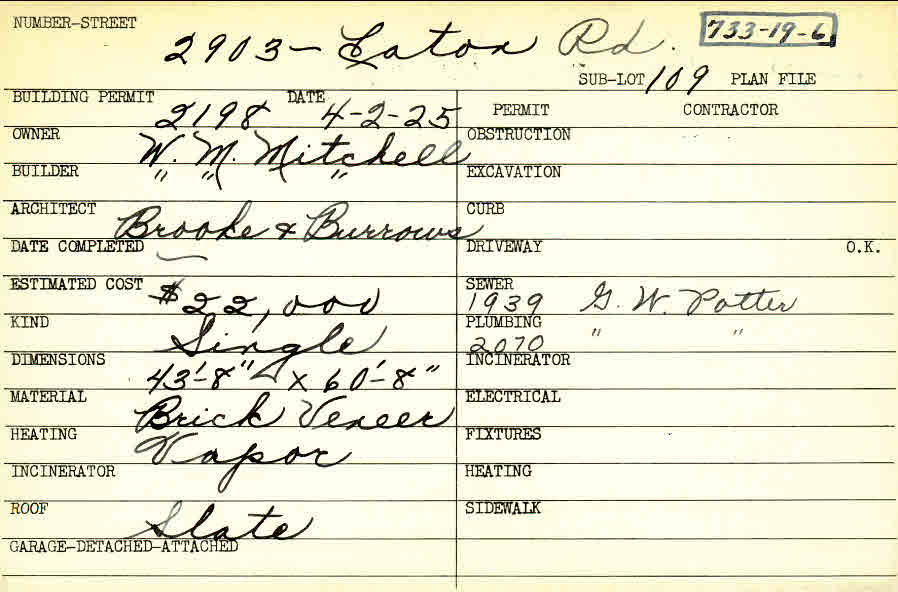 NUMBER-STREET
2903 - Eaton Rd.
733-19-6
SUB-LOT 109 PLAN FILE
BUILDING PERMIT 2198 DATE 4-2-25
PERMIT CONTRACTOR
OWNER W. M. Mitchell
OBSTRUCTION
BUILDER " " "
EXCAVATION
ARCHITECT Brooke & Burrows
CURB
DATE COMPLETED
DRIVEWAY O.K.
ESTIMATED COST $22,000
SEWER 1939 G. W. Potter
KIND Single
PLUMBING 2070 " "
DIMENSIONS 43'-8" X 60'-8"
INCINERATOR
MATERIAL Brick Veneer
ELECTRICAL
HEATING Vapor
FIXTURES
INCINERATOR
HEATING
ROOF Slate
SIDEWALK
GARAGE-DETACHED-ATTACHED